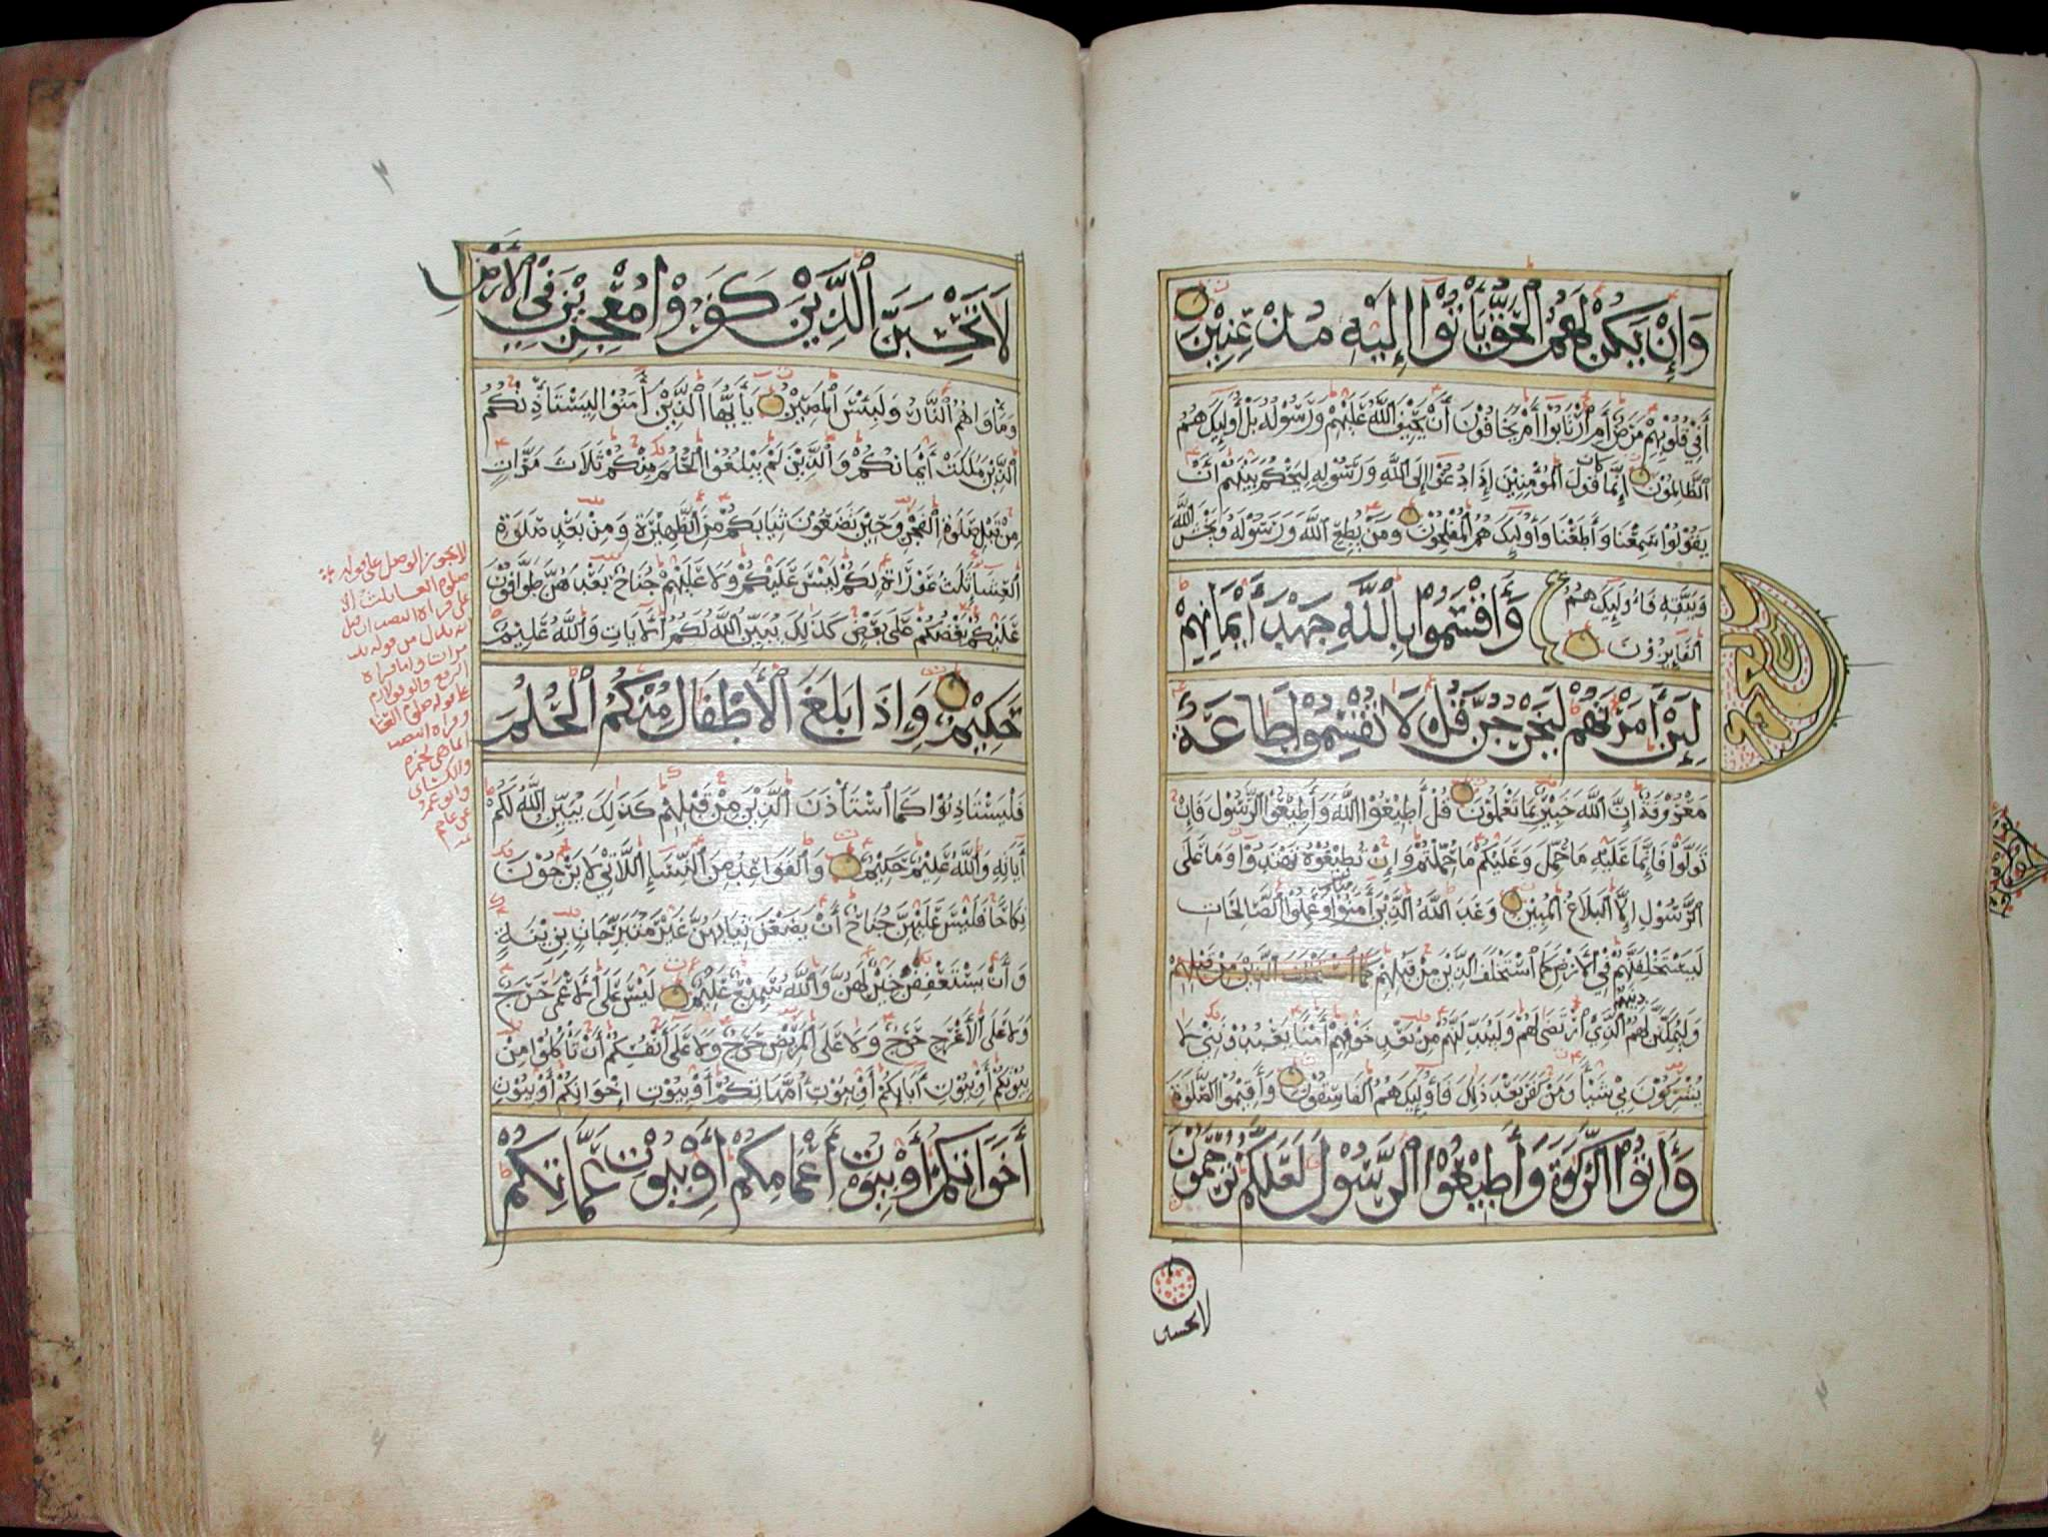 وَإِنْ يَكُنْ لَهُمُ الْحَقُّ يَأْتُوا إِلَيْهِ مُذْعِنِينَ
أَفِي قُلُوبِهِمْ مَرَضٌ أَمِ ارْتَابُوا أَمْ يَخَافُونَ أَنْ يَحِيفَ اللَّهُ عَلَيْهِمْ وَرَسُولُهُ بَلْ أُولَٰئِكَ هُمُ
الظَّالِمُونَ إِنَّمَا كَانَ قَوْلَ الْمُؤْمِنِينَ إِذَا دُعُوا إِلَى اللَّهِ وَرَسُولِهِ لِيَحْكُمَ بَيْنَهُمْ أَنْ
يَقُولُوا سَمِعْنَا وَأَطَعْنَا وَأُولَٰئِكَ هُمُ الْمُفْلِحُونَ وَمَنْ يُطِعِ اللَّهَ وَرَسُولَهُ وَيَخْشَ اللَّهَ
وَيَتَّقِهِ فَأُولَٰئِكَ هُمُ
الْفَائِزُونَ
وَأَقْسَمُوا بِاللَّهِ جَهْدَ أَيْمَانِهِمْ
لَئِنْ أَمَرْتَهُمْ لَيَخْرُجُنَّ قُلْ لَا تُقْسِمُوا طَاعَةٌ
مَعْرُوفَةٌ إِنَّ اللَّهَ خَبِيرٌ بِمَا تَعْمَلُونَ قُلْ أَطِيعُوا اللَّهَ وَأَطِيعُوا الرَّسُولَ فَإِنْ
تَوَلَّوْا فَإِنَّمَا عَلَيْهِ مَا حُمِّلَ وَعَلَيْكُمْ مَا حُمِّلْتُمْ وَإِنْ تُطِيعُوهُ تَهْتَدُوا وَمَا عَلَى
الرَّسُولِ إِلَّا الْبَلَاغُ الْمُبِينُ وَعَدَ اللَّهُ الَّذِينَ آمَنُوا مِنْكُمْ وَعَمِلُوا الصَّالِحَاتِ
لَيَسْتَخْلِفَنَّهُمْ فِي الْأَرْضِ كَمَا اسْتَخْلَفَ الَّذِينَ مِنْ قَبْلِهِمْ كَمَا اسْتَخْلَفَ الَّذِينَ مِنْ قَبْلِهِمْ
وَلَيُمَكِّنَنَّ لَهُمْ دِينَهُمُ الَّذِي ارْتَضَىٰ لَهُمْ وَلَيُبَدِّلَنَّهُمْ مِنْ بَعْدِ خَوْفِهِمْ أَمْنًا يَعْبُدُونَنِي لَا
يُشْرِكُونَ بِي شَيْئًا وَمَنْ كَفَرَ بَعْدَ ذَٰلِكَ فَأُولَٰئِكَ هُمُ الْفَاسِقُونَ وَأَقِيمُوا الصَّلَوٰةَ
وَآتُوا الزَّكَوٰةَ وَأَطِيعُوا الرَّسُولَ لَعَلَّكُمْ تُرْحَمُونَ
لا تحسبن
لَا تَحْسَبَنَّ الَّذِينَ كَفَرُوا مُعْجِزِينَ فِي الْأَرْضِ
وَمَأْوَاهُمُ النَّارُ وَلَبِئْسَ الْمَصِيرُ يَا أَيُّهَا الَّذِينَ آمَنُوا لِيَسْتَأْذِنْكُمُ
الَّذِينَ مَلَكَتْ أَيْمَانُكُمْ وَالَّذِينَ لَمْ يَبْلُغُوا الْحُلُمَ مِنْكُمْ ثَلَاثَ مَرَّاتٍ
مِنْ قَبْلِ صَلَوٰةِ الْفَجْرِ وَحِينَ تَضَعُونَ ثِيَابَكُمْ مِنَ الظَّهِيرَةِ وَمِنْ بَعْدِ صَلَوٰةِ
الْعِشَاءِ ثَلَٰثُ عَوْرَاتٍ لَكُمْ لَيْسَ عَلَيْكُمْ وَلَا عَلَيْهِمْ جُنَاحٌ بَعْدَهُنَّ طَوَّافُونَ
عَلَيْكُمْ بَعْضُكُمْ عَلَىٰ بَعْضٍ كَذَٰلِكَ يُبَيِّنُ اللَّهُ لَكُمُ الْآيَاتِ وَاللَّهُ عَلِيمٌ
حَكِيمٌ وَإِذَا بَلَغَ الْأَطْفَالُ مِنْكُمُ الْحُلُمَ
فَلْيَسْتَأْذِنُوا كَمَا اسْتَأْذَنَ الَّذِينَ مِنْ قَبْلِهِمْ كَذَٰلِكَ يُبَيِّنُ اللَّهُ لَكُمْ
آيَاتِهِ وَاللَّهُ عَلِيمٌ حَكِيمٌ وَالْقَوَاعِدُ مِنَ النِّسَاءِ اللَّاتِي لَا يَرْجُونَ
نِكَاحًا فَلَيْسَ عَلَيْهِنَّ جُنَاحٌ أَنْ يَضَعْنَ ثِيَابَهُنَّ غَيْرَ مُتَبَرِّجَاتٍ بِزِينَةٍ
وَأَنْ يَسْتَعْفِفْنَ خَيْرٌ لَهُنَّ وَاللَّهُ سَمِيعٌ عَلِيمٌ لَيْسَ عَلَى الْأَعْمَىٰ حَرَجٌ
وَلَا عَلَى الْأَعْرَجِ حَرَجٌ وَلَا عَلَى الْمَرِيضِ حَرَجٌ وَلَا عَلَىٰ أَنْفُسِكُمْ أَنْ تَأْكُلُوا مِنْ
بُيُوتِكُمْ أَوْ بُيُوتِ آبَائِكُمْ أَوْ بُيُوتِ أُمَّهَاتِكُمْ أَوْ بُيُوتِ إِخْوَانِكُمْ أَوْ بُيُوتِ
أَخَوَاتِكُمْ أَوْ بُيُوتِ أَعْمَامِكُمْ أَوْ بُيُوتِ عَمَّاتِكُمْ
لا يجوز الوصل على قوله